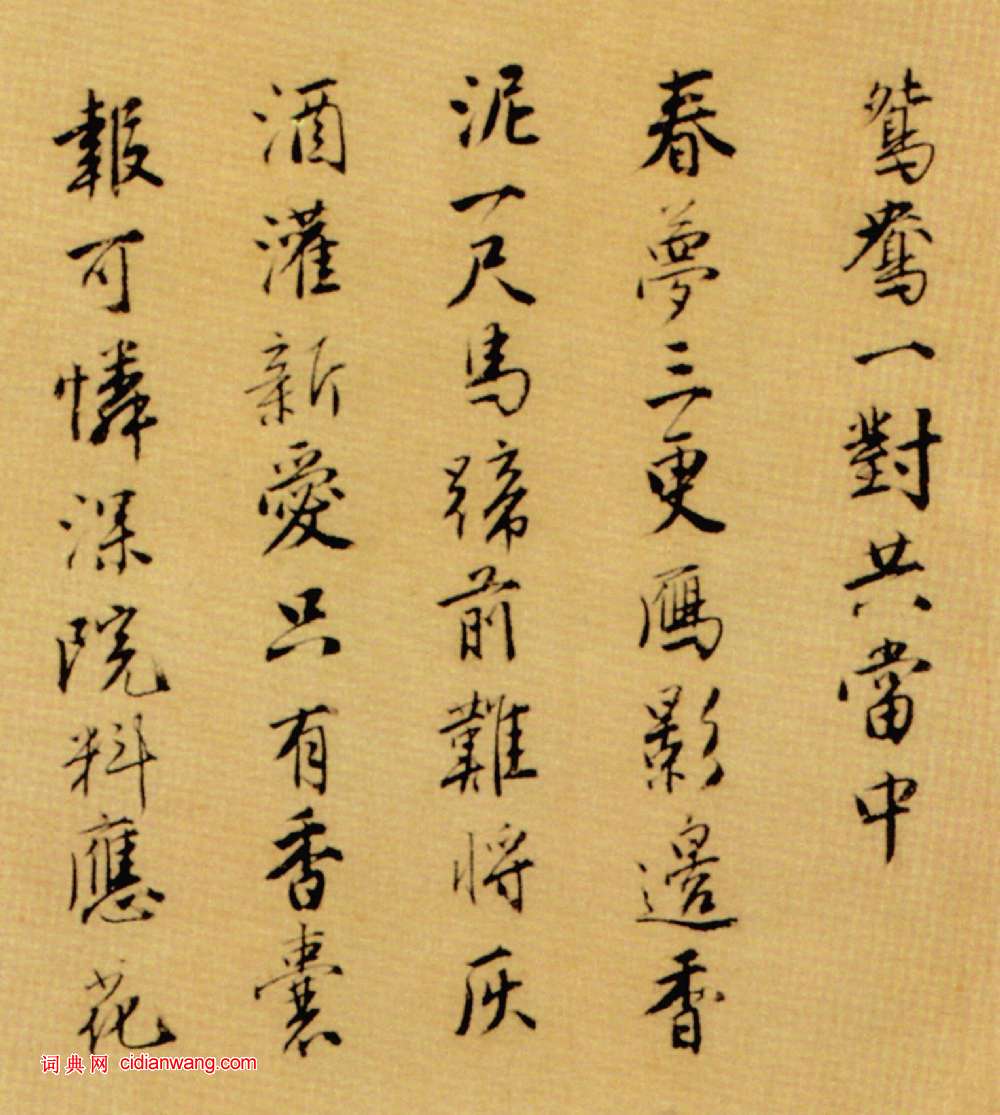 鴛鴦一對共當中
春夢三更雁影邊香
泥一尺馬蹄前難將灰
酒灌新愛只有香囊
報可憐深院料應花
词典网 cidianwang.com